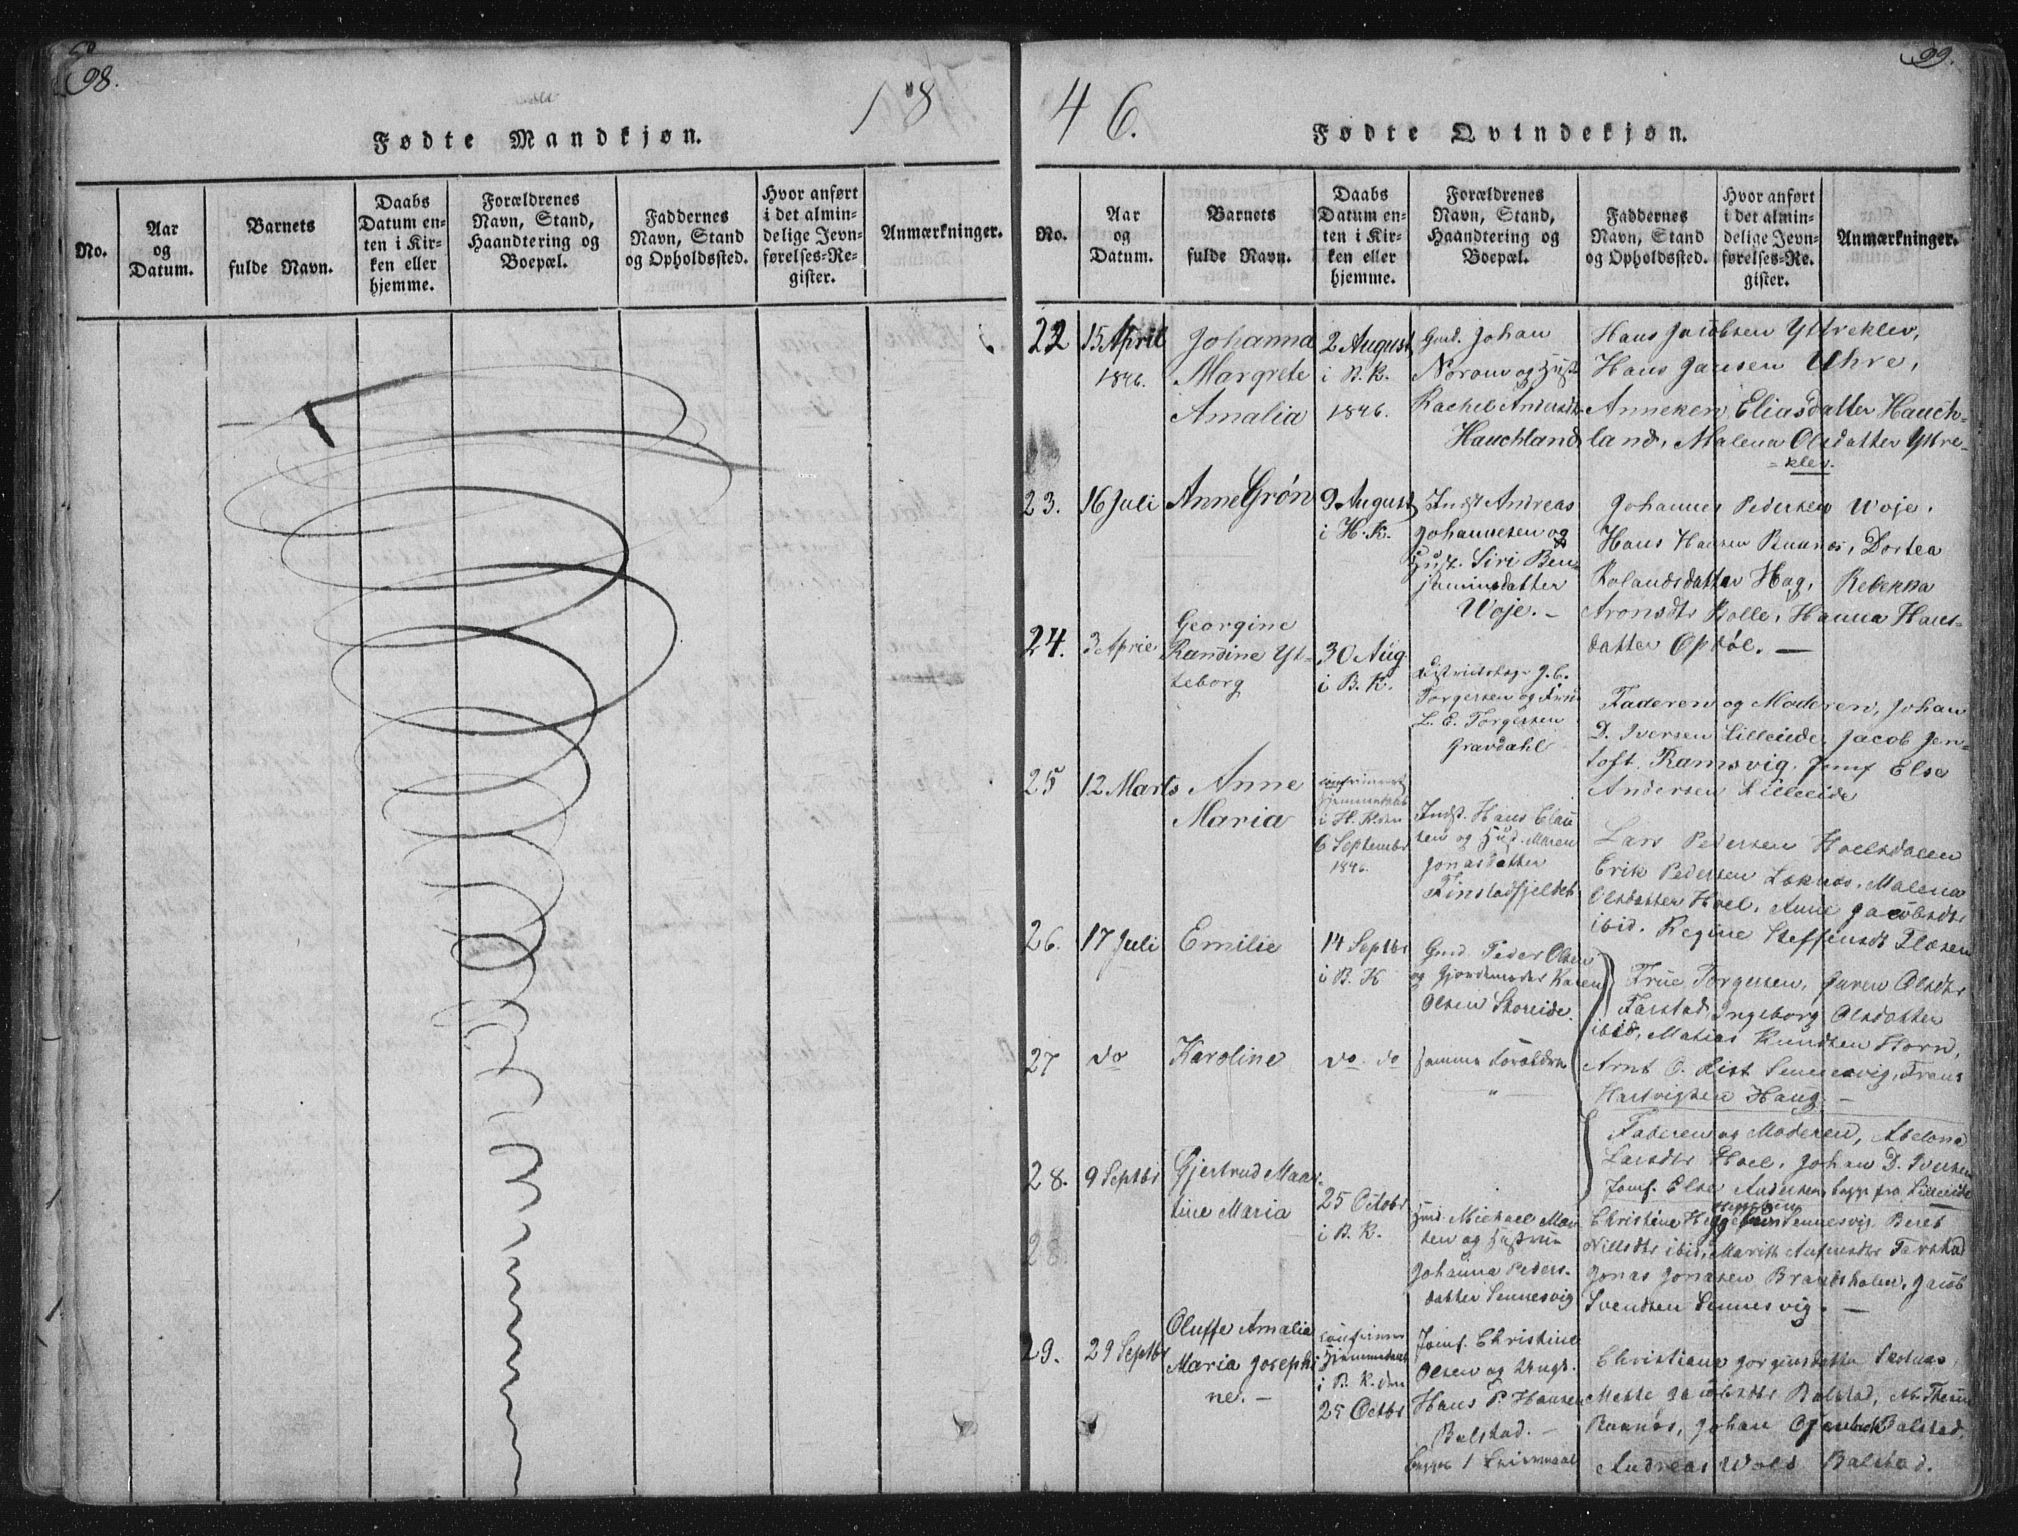 98.
18
Fødte Mandkjøn.
No.
Aar
og
Datum.
Barnets
fulde Navn.
Daabs
Datum en-
ten i Kir-
ken eller
hjemme.
Forældrenes
Navn, Stand,
Haandtering og
Boepæl.
Faddernes
Navn, Stand
og Opholdssted.
Hvor anført
i det almin-
delige Jevn-
førelses-Re-
gister.
Anmærkninger.
99.
46.
Fødte Qvindekjøn.
No.
Aar
og
Datum.
Barnets
fulde Navn.
Daabs
Datum en-
ten i Kir-
ken eller
hjemme.
Forældrenes
Navn, Stand,
Haandtering og
Boepæl.
Faddernes
Navn, Stand
og Opholdssted.
Hvor anført
i det almin-
delige Jevn-
førelses-Re-
gister.
Anmærkninger.
22
15 April
1846.
Johanna
Margrete
Amalia
2 August
i B. K.
1846.
Gmd. Johan
Norum og Hust.
Rachel Andersdtr
Hauchland
Hans Jacobsen Yttreklev,
Hans Jansen Uhre,
Anneken Eliasdatter Hauch-
land, Malena Olsdatter Yttre-
klev.
23.
16 Juli
Anne Grøn
9 August
i H. K.
Indst Andreas
Johannesen og
Hust. Siri Ben-
jaminsdatter
Woje. -
Johannes Pedersen Woje.
Hans Hansen Buanes, Dortea
Rolandsdatter Hag, Rebekka
Aronsdtr Rolle, Hanna Hans-
datter Opdøl. -
24.
3 April
Georgine
Randine Yt-
teborg
30 Aug
i B. K.
J. C.
Torgersen og Frue
L. E. Torgersen
Gravdahl
Faderen og Moderen, Johan
D. Iversen Lilleeide, Jacob Jen-
toft, Ramsvig. Jomf Else
Andersen Lilleeide
25
12 Marts
Anne
Maria
i H. K. den
6 Septembr
1846.
Indst. Hans Clau
sen og Hust. Maren
Jonasdatter
Finstadfjeldet
Lars Pedersen Hoelsdalen
Erik Pedersen Leknes, Malena
Olsdatter Hoel, Anne Jacobsdtr
ibid. Regine Steffensdtr Flæsen
26.
17 Juli
Emilie
14 Septbr
i B. K
Gmd. Peder Olsen
og Gjordemoder Karen
Olsen Storeide.
Frue Torgersen, Juren Olsdtr
Farstad, Ingeborg Olsdatter
ibid, Matias Knudsen Horn,
27
do
Karoline
do do
samme Forældre
Arnt O. Rist Sennesvig, Frans
Hartvigsen Haug. -
28.
9 Septbr
Gjertrud Maar-
tine Maria
25 Octobr
i B. K.
Gmd. Michael Mar
sen og Hustrue
Johanna Peders-
datter Sennesvig
Faderen og Moderen, Abelona
Larsdtr Hoel, Johan D. Iversen
Jomf. Else Andersen begge fra Lilleeide
Christine Sennesvig Beret
Nillsdtr ibid, Marith Farstad
Jonas Jonasen Brandsholm, Jacob
Svendsen Sennesvig. -
29.
29 Septbr
Oluffe Amalia
Maria Josephi
ne. -
i B. K. den
25 Octbr
Jomf. Christine
Olsen og Ungk.
Hans P. Hansen
Balstad. -
Christiana Jørgensdatter
Mette Jacobsdtr Balstad,
Buanes, Johan Balstad.
Andreas Wold Balstad.